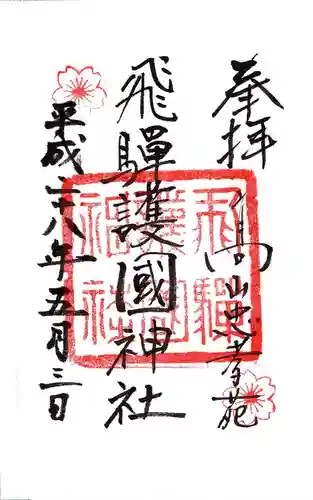 奉拝
高山忠孝苑
飛騨護國神社
平成二十八年五月三日
飛騨護國神社